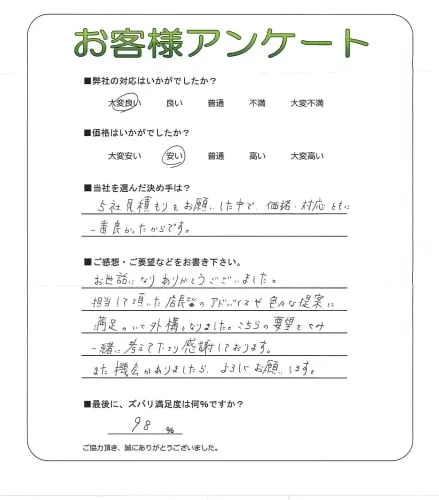 お客様アンケート
■弊社の対応はいかがでしたか？
大変良い 良い 普通 不満 大変不満
■価格はいかがでしたか？
大変安い 安い 普通 高い 大変高い
■当社を選んだ決め手は？
5社見積もりをお願いした中で、価格・対応ともに
一番良かったからです。
■ご感想・ご要望などをお書き下さい。
お世話になりありがとうございました。
担当して頂いた店長さんのアドバイスや色々な提案に
満足のいく外構となりました。こちらの要望も
一緒に考えて下さり感謝しております。
また機会がありましたら、よろしくお願いします。
■最後に、ズバリ満足度は何%ですか？
98 %
ご協力頂き、誠にありがとうございました。